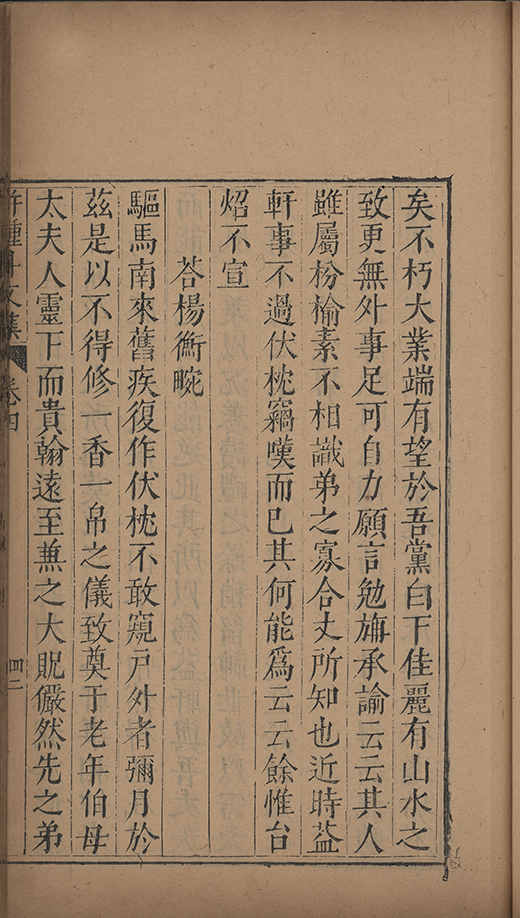 矣不朽大業端有望於吾黨白下佳麗有山水之
致更無外事足可自力願言勉旃承諭云云其人
雖屬枌榆素不相識弟之寡合丈所知也近時益
軒事不過伏枕竊嘆而已其何能爲云云餘惟台
炤不宣
荅楊衝畹
驅馬南來舊疾復作伏枕不敢窺戶外者彌月於
茲是以不得修一香一帛之儀致奠于老年伯母
太夫人靈下而貴翰遠至兼之大貺儼然先之弟
許鍾斗文集
卷四
四二